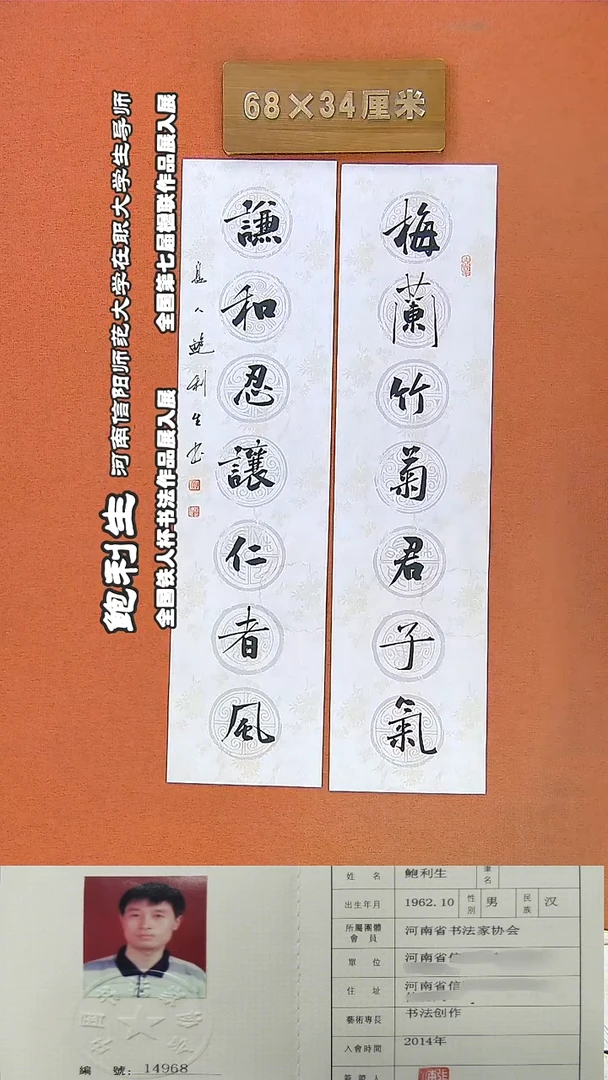 68×34厘米
梅蘭竹菊君子氣
謙和忍讓仁者風
息人鲍利生书
鲍利生 河南信阳师范大学在职大学生导师
全国第七届楹联作品展入展
全国铁人杯书法作品展入展
姓 名 鲍利生 筆名
出生年月 1962.10 性別 男 民族 汉
所屬團體會員 河南省书法家协会
單 位 河南省信
住 址 河南省信
藝術專長 书法创作
入會時間 2014年
簽證人
編 號: 14968